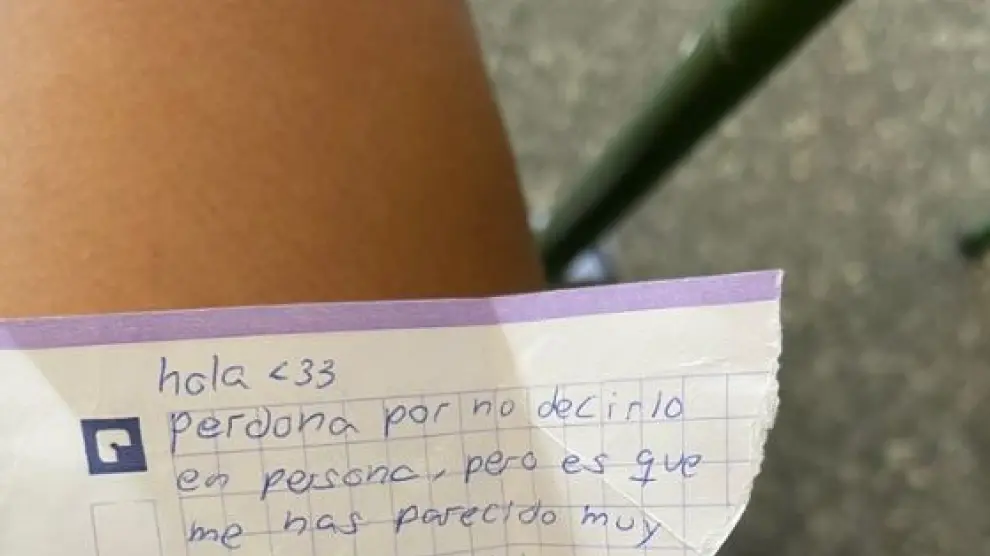 hola <33
perdona por no decirlo
en persona, pero es que
me has parecido muy